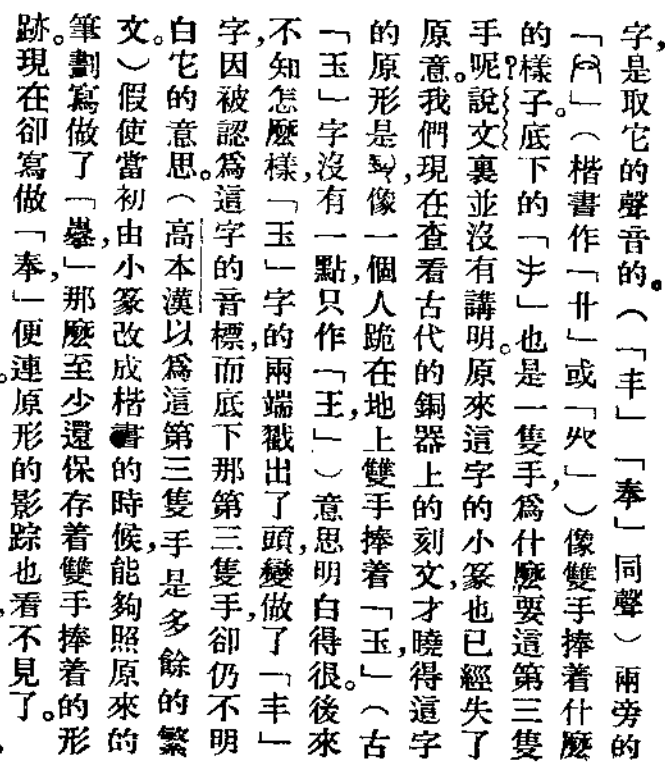 字,是取它的聲音的。(「丰」「奉」同聲)兩旁的
「」(楷書作「廾」或「」)像雙手捧着什麼
的樣子。底下的「」也是一隻手,爲什麼要這第三隻
手呢?說文裏並沒有講明。原來這字的小篆也已經失了
原意。我們現在查看古代的銅器上的刻文,才曉得這字
的原形是,像一個人跪在地上雙手捧着「玉,」(古
「玉」字沒有一點,只作「王,」)意思明白得很。後來
不知怎麼樣,「玉」字的兩端戳出了頭,變做了「丰」
字,因被認爲這字的音標,而底下那第三隻手,卻仍不明
白它的意思。(高本漢以爲這第三隻手是多餘的繁
文。)假使當初由小篆改成楷書的時候,能夠照原來的
筆劃寫做了「,」那麼至少還保存着雙手捧着的形
跡。現在卻寫做「奉,」便連原形的影踪也看不見了。